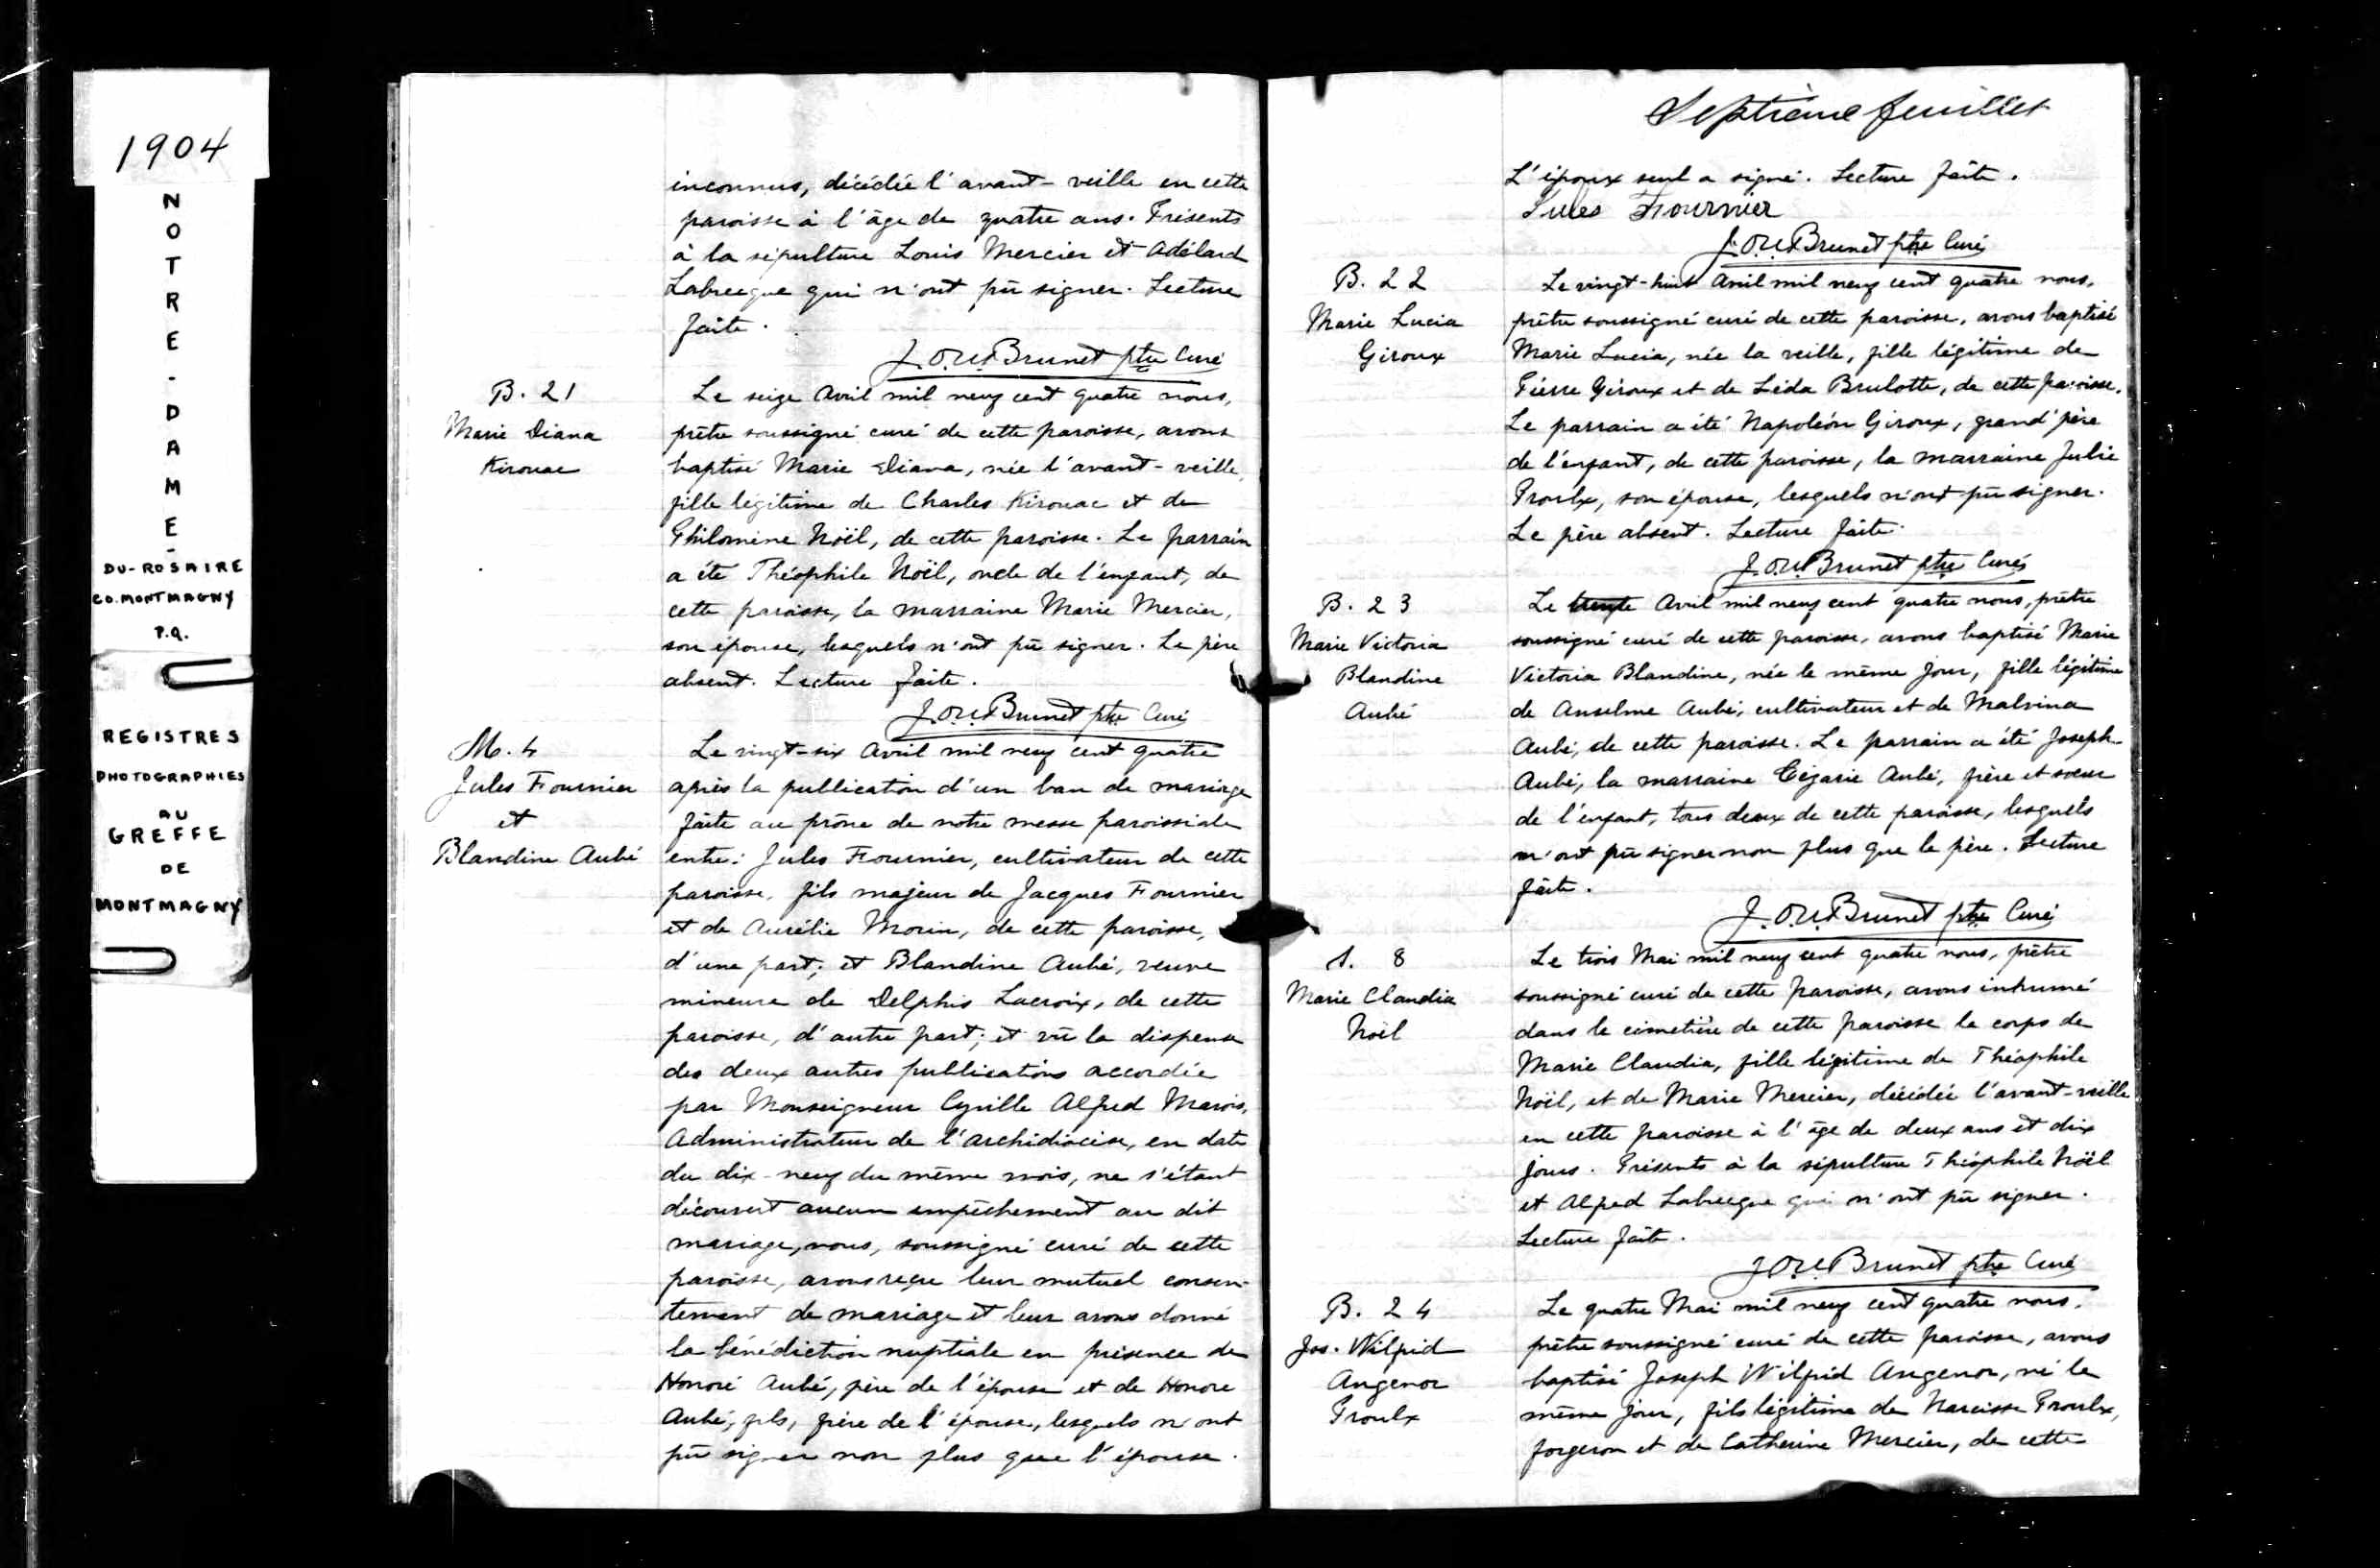 1904
NOTRE-DAME-
DU-ROSAIRE
CO. MONTMAGNY
P.Q.
REGISTRES
PHOTOGRAPHIES
AU
GREFFE
DE
MONTMAGNY
inconnus, décédée l'avant-veille en cette
paroisse à l'âge de quatre ans. Présents
à la sépulture Louis Mercier et Adélard
Labrecque qui n'ont pû signer. Lecture
faite.
J.O.U. Brunet ptre Curé
B. 21
Marie Diana
Kirouac
Le seize Avril mil neuf cent quatre nous,
prêtre soussigné curé de cette paroisse, avons
baptisé Marie Diana, née l'avant-veille,
fille légitime de Charles Kirouac et de
Philomène Noël, de cette paroisse. Le parrain
a été Théophile Noël, oncle de l'enfant, de
cette paroisse, la marraine Marie Mercier,
son épouse, lesquels n'ont pû signer. Le père
absent. Lecture faite.
J.O.U. Brunet ptre Curé
M. 4
Jules Fournier
et
Blandine Aubé
Le vingt-six Avril mil neuf cent quatre
après la publication d'un ban de mariage
faite au prône de notre messe paroissiale
entre: Jules Fournier, cultivateur de cette
paroisse, fils majeur de Jacques Fournier
et de Aurélie Morin, de cette paroisse,
d'une part; et Blandine Aubé, veuve
mineure de Delphis Lacroix, de cette
paroisse, d'autre part; et vû la dispense
des deux autres publications accordée
par Monseigneur Cyrille Alfred Marois,
Administrateur de l'archidiocèse, en date
du dix-neuf du même mois, ne s'étant
découvert aucun empêchement au dit
mariage, nous, soussigné curé de cette
paroisse, avons reçu leur mutuel consen-
tement de mariage et leur avons donné
la bénédiction nuptiale en présence de
Honoré Aubé, père de l'épouse et de Honoré
Aubé, fils, frère de l'épouse, lesquels n'ont
pû signer non plus que l'épouse.
Septième feuillet
L'époux seul a signé. Lecture faite.
Jules Fournier
J.O.U. Brunet ptre Curé
B. 22
Marie Lucia
Giroux
Le vingt-huit Avril mil neuf cent quatre nous,
prêtre soussigné curé de cette paroisse, avons baptisé
Marie Lucia, née la veille, fille légitime de
Pierre Giroux et de Léda Brulotte, de cette paroisse.
Le parrain a été Napoléon Giroux, grand'père
de l'enfant, de cette paroisse, la marraine Julie
Proulx, son épouse, lesquels n'ont pû signer.
Le père absent. Lecture faite.
J.O.U. Brunet ptre Curé
B. 23
Marie Victoria
Blandine
Aubé
Le trente Avril mil neuf cent quatre nous, prêtre
soussigné curé de cette paroisse, avons baptisé Marie
Victoria Blandine, née le même jour, fille légitime
de Anselme Aubé, cultivateur et de Malvina
Aubé, de cette paroisse. Le parrain a été Joseph
Aubé, la marraine Aubé, frère et sœur
de l'enfant, tous deux de cette paroisse, lesquels
n'ont pû signer non plus que le père. Lecture
faite.
J.O.U. Brunet ptre Curé
S. 8
Marie Claudia
Noël
Le trois Mai mil neuf cent quatre nous, prêtre
soussigné curé de cette paroisse, avons inhumé
dans le cimetière de cette paroisse le corps de
Marie Claudia, fille légitime de Théophile
Noël, et de Marie Mercier, décédée l'avant-veille
en cette paroisse à l'âge de deux ans et dix
jours. Présents à la sépulture Théophile Noël
et Alfred Labrecque qui n'ont pû signer.
Lecture faite.
J.O.U. Brunet ptre Curé
B. 24
Jos. Wilfrid
Angenor
Proulx
Le quatre Mai mil neuf cent quatre nous,
prêtre soussigné curé de cette paroisse, avons
baptisé Joseph Wilfrid Angenor, né le
même jour, fils légitime de Narcisse Proulx,
forgeron et de Catherine Mercier, de cette